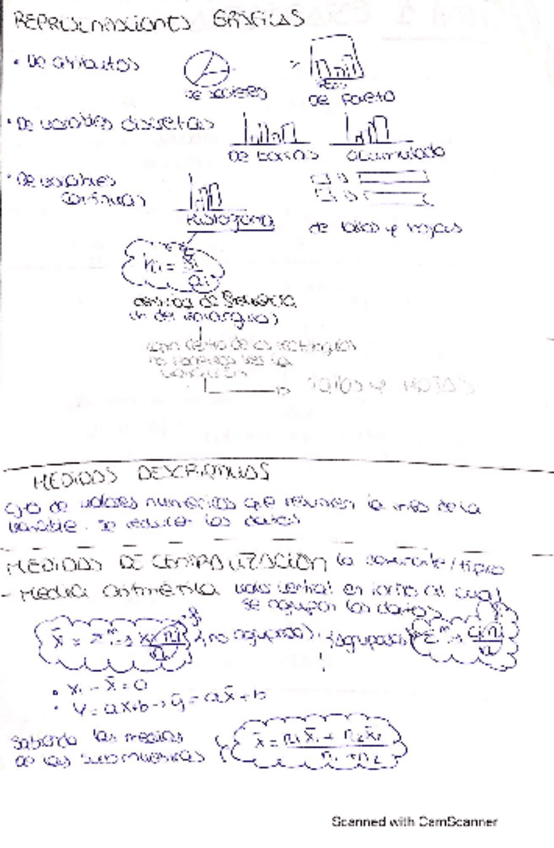 REPRESENTACIONES GRÁFICAS
• De atributos
De sectores
De Pareto
• De variables discretas
De barras
acumulado
• De variables continuas
Histograma
de tallos y hojas
hi = fi/ai
densidad de frecuencia
(h del rectángulo)
dentro de los rectángulos
no
TALLOS Y HOJAS
MEDIDAS DESCRIPTIVAS
cjto de valores numéricos que resumen la de la
variable. se reducen los datos
MEDIDAS DE CENTRALIZACIÓN
- Media aritmética valor central en torno al cual
se agrupan los datos
(no agrupados) (agrupados)
• xi - x̄ = 0
• y = ax+b → ȳ = ax̄ + b
Sabiendo las medias
de las submuestras
x̄ = n₁x̄₁ + n₂x̄₂ / n₁ + n₂
Scanned with CamScanner